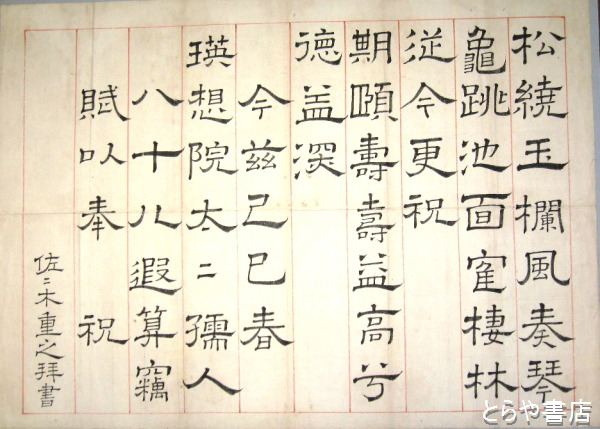 松繞玉欄風奏琴
龜跳池面寉棲林
従今更祝
期頤壽壽益高兮
徳益深
今茲己巳春
瑛想院太〻孺人
八十八遐算竊
賦以奉　祝
佐〻木重之拝書
とらや書店